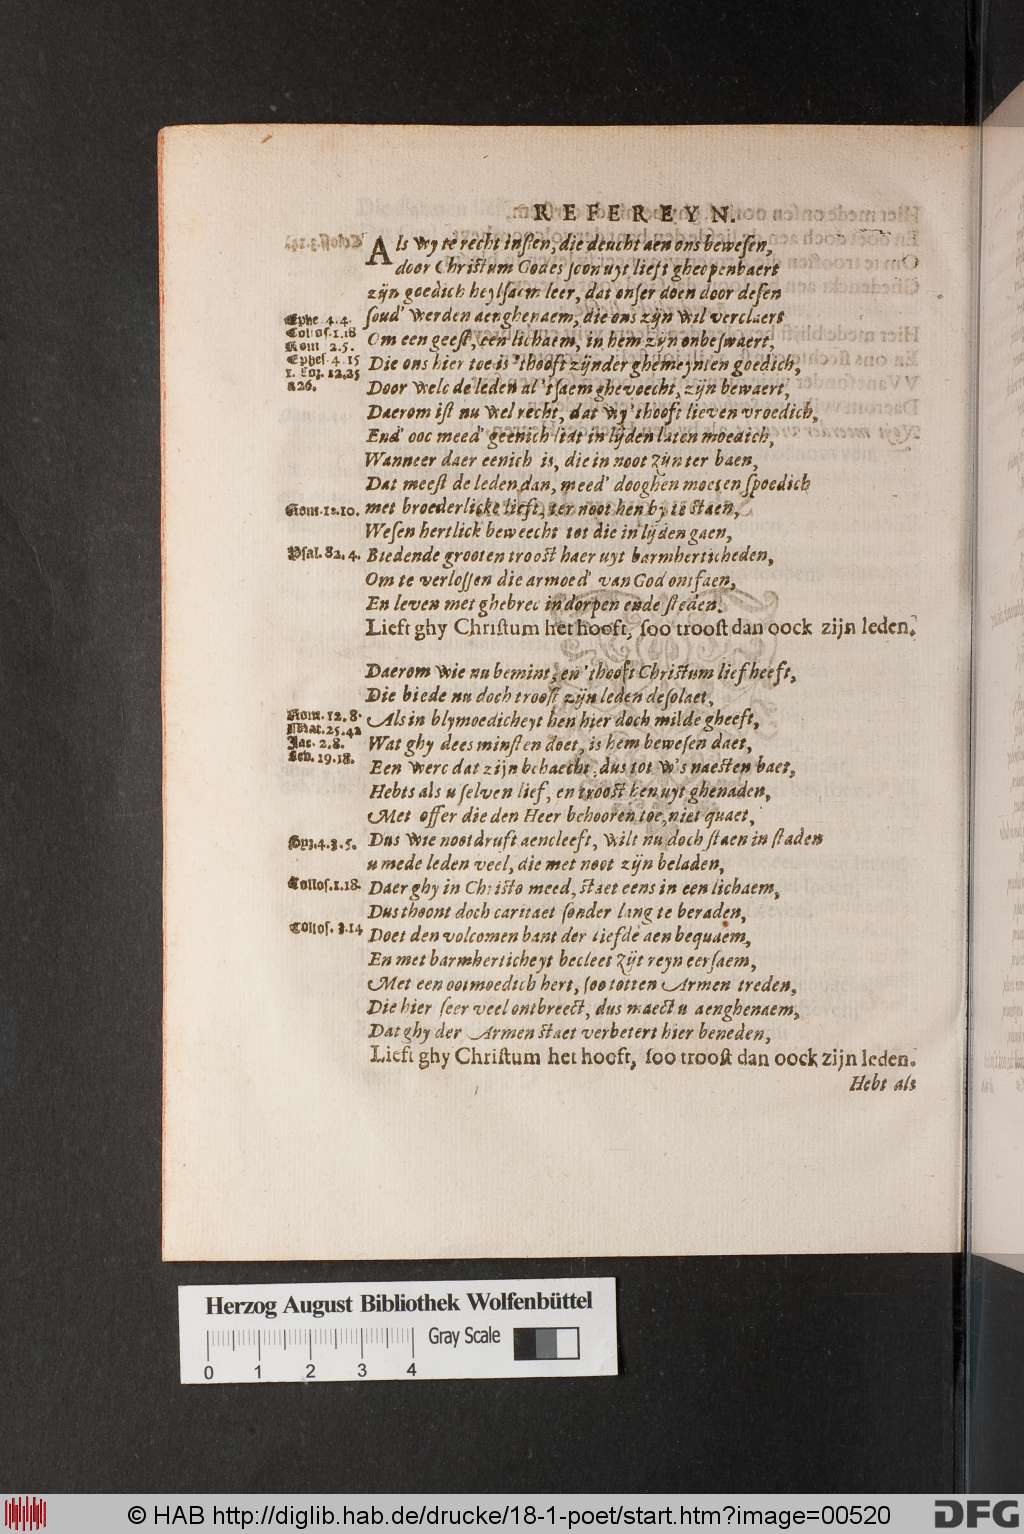 REFEREYN.
Als wy te recht insien, die deucht aen ons bewesen,
door Christum Godes soon uyt lieft gheopenbaert
zijn goedich heylsaem leer, dat onser doen door desen
soud' werden aenghenaem, die ons zijn wil verclaert
Om een geest, een lichaem, in hem zijn onbeswaert,
Die ons hier toe is 'thooft zijnder ghemeynten goedich,
Door welc de leden al 'tsaem ghevoecht, zijn bewaert,
Daerom ist nu wel recht, dat wy 'thooft lieven vroedich,
End' ooc meed' geenich lidt in lijden laten moedich,
Wanneer daer eenich is, die in noot zijn ter baen,
Dat meest de leden dan, meed' dooghen moeten spoedich
met broederlicke lieft, ter noot hen by te staen,
Wesen hertlick beweecht tot die in lijden gaen,
Biedende grooten troost haer uyt barmherticheden,
Om te verlossen die armoed' van God ontfaen,
En leven met ghebrec in dorpen ende steden.
Lieft ghy Christum het hooft, soo troost dan oock zijn leden.
Ephe 4.4.
Collos.1.18
Rom 2.5.
Ephes 4.15
1. Cor. 12,25
a26.
Rom.12.10.
Psal.82.4.
Daerom wie nu bemint, en 'thooft Christum lief heeft,
Die biede nu doch troost zijn leden desolaet,
Als in blymoedicheyt hen hier doch milde gheeft,
Wat ghy dees minsten doet, is hem bewesen daet,
Een werc dat zijn behaecht, dus tot w's naesten baet,
Hebts als u selven lief, en troost hen uyt ghenaden,
Met offer die den Heer behooren toe, niet quaet,
Dus wie nootdruft aencleeft, wilt nu doch staen in staden
u mede leden veel, die met noot zijn beladen,
Daer ghy in Christo meed, staet eens in een lichaem,
Dus thoont doch caritaet sonder lang te beraden,
Doet den volcomen bant der liefde aen bequaem,
En met barmherticheyt becleet zijt reyn eersaem,
Met een ootmoedich hert, soo totten Armen treden,
Die hier seer veel ontbreect, dus maect u aenghenaem,
Dat ghy der Armen staet verbetert hier beneden,
Lieft ghy Christum het hooft, soo troost dan oock zijn leden.
Rom.12.8.
Mat.25.42
Jac.2.8.
Lev.19.18.
Syr.4.3.5.
Collos.1.18.
Collos.3.14
Hebt als
Herzog August Bibliothek Wolfenbüttel
Gray Scale
0 1 2 3 4
© HAB http://diglib.hab.de/drucke/18-1-poet/start.htm?image=00520
DFG